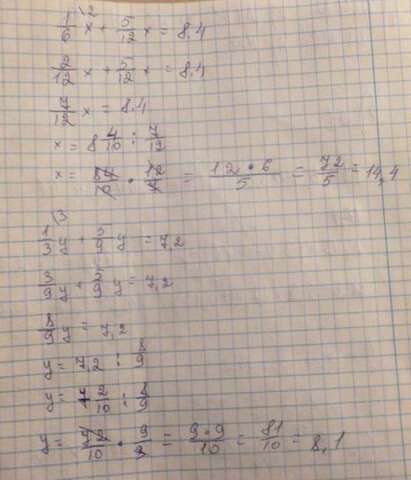 1/6 x + 5/12 x = 8,4
2/12 x + 5/12 x = 8,4
7/12 x = 8,4
x = 8 4/10 : 7/12
x = 84/10 • 12/7 = 12 • 6/5 = 72/5 = 14,4
1/3 y + 5/9 y = 7,2
3/9 y + 5/9 y = 7,2
8/9 y = 7,2
y = 7,2 : 8/9
y = 7 2/10 : 8/9
y = 72/10 • 9/8 = 9 • 9/10 = 81/10 = 8,1